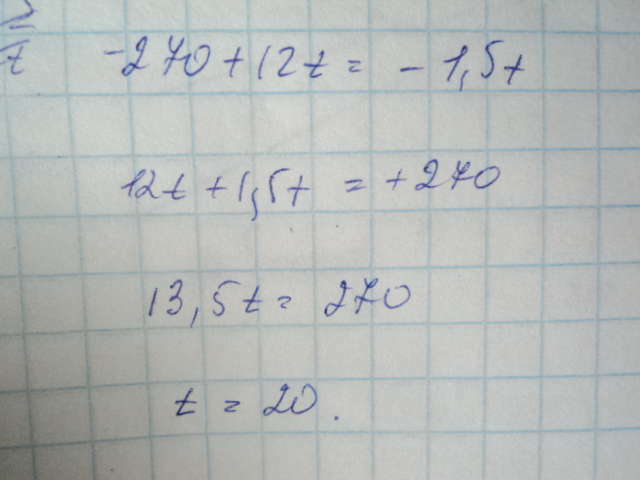 t
-270+12t = -1,5t
12t+1,5t = +270
13,5t = 270
t = 20.